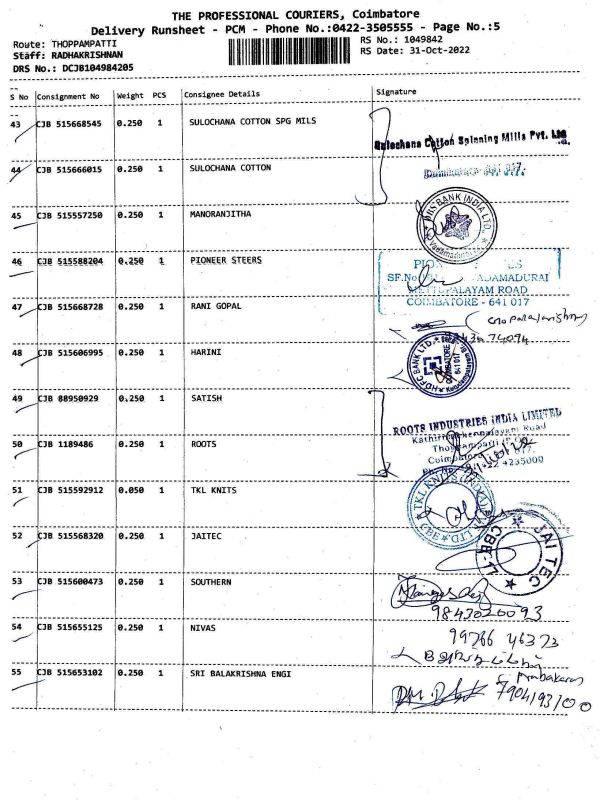 THE PROFESSIONAL COURIERS, Coimbatore
Delivery Runsheet - PCM - Phone No.:0422-3505555 - Page No.:5
Route: THOPPAMPATTI
RS No.: 1049842
Staff: RADHAKRISHNAN
RS Date: 31-Oct-2022
DRS No.: DCJB104984205
S No Consignment No Weight PCS Consignee Details Signature
43 CJB 515668545 0.250 1 SULOCHANA COTTON SPG MILS
Sulochana Cotton Spinning Mills Pvt. Ltd
44 CJB 515666015 0.250 1 SULOCHANA COTTON
641 017.
45 CJB 515557250 0.250 1 MANORANJITHA
DBS BANK INDIA LTD.
Vadamadurai
46 CJB 515588204 0.250 1 PIONEER STEERS
SF.No
VADAMADURAI
METTUPALAYAM ROAD
COIMBATORE - 641 017
47 CJB 515668728 0.250 1 RANI GOPAL
48 CJB 515606995 0.250 1 HARINI
HDFC BANK LTD.
COIMBATORE
641 017
49 CJB 88950929 0.250 1 SATISH
ROOTS INDUSTRIES INDIA LIMITED
Road
50 CJB 1189486 0.250 1 ROOTS
Thoppampatti
Coimbatore
4235000
51 CJB 515592912 0.050 1 TKL KNITS
TKL KNITS (INDIA) LTD
CBE
52 CJB 515568320 0.250 1 JAITEC
JAI TEC
CBE-17
53 CJB 515600473 0.250 1 SOUTHERN
9843020093
54 CJB 515655125 0.250 1 NIVAS
99766 46373
55 CJB 515653102 0.250 1 SRI BALAKRISHNA ENGI
Prabakaran
7904193100